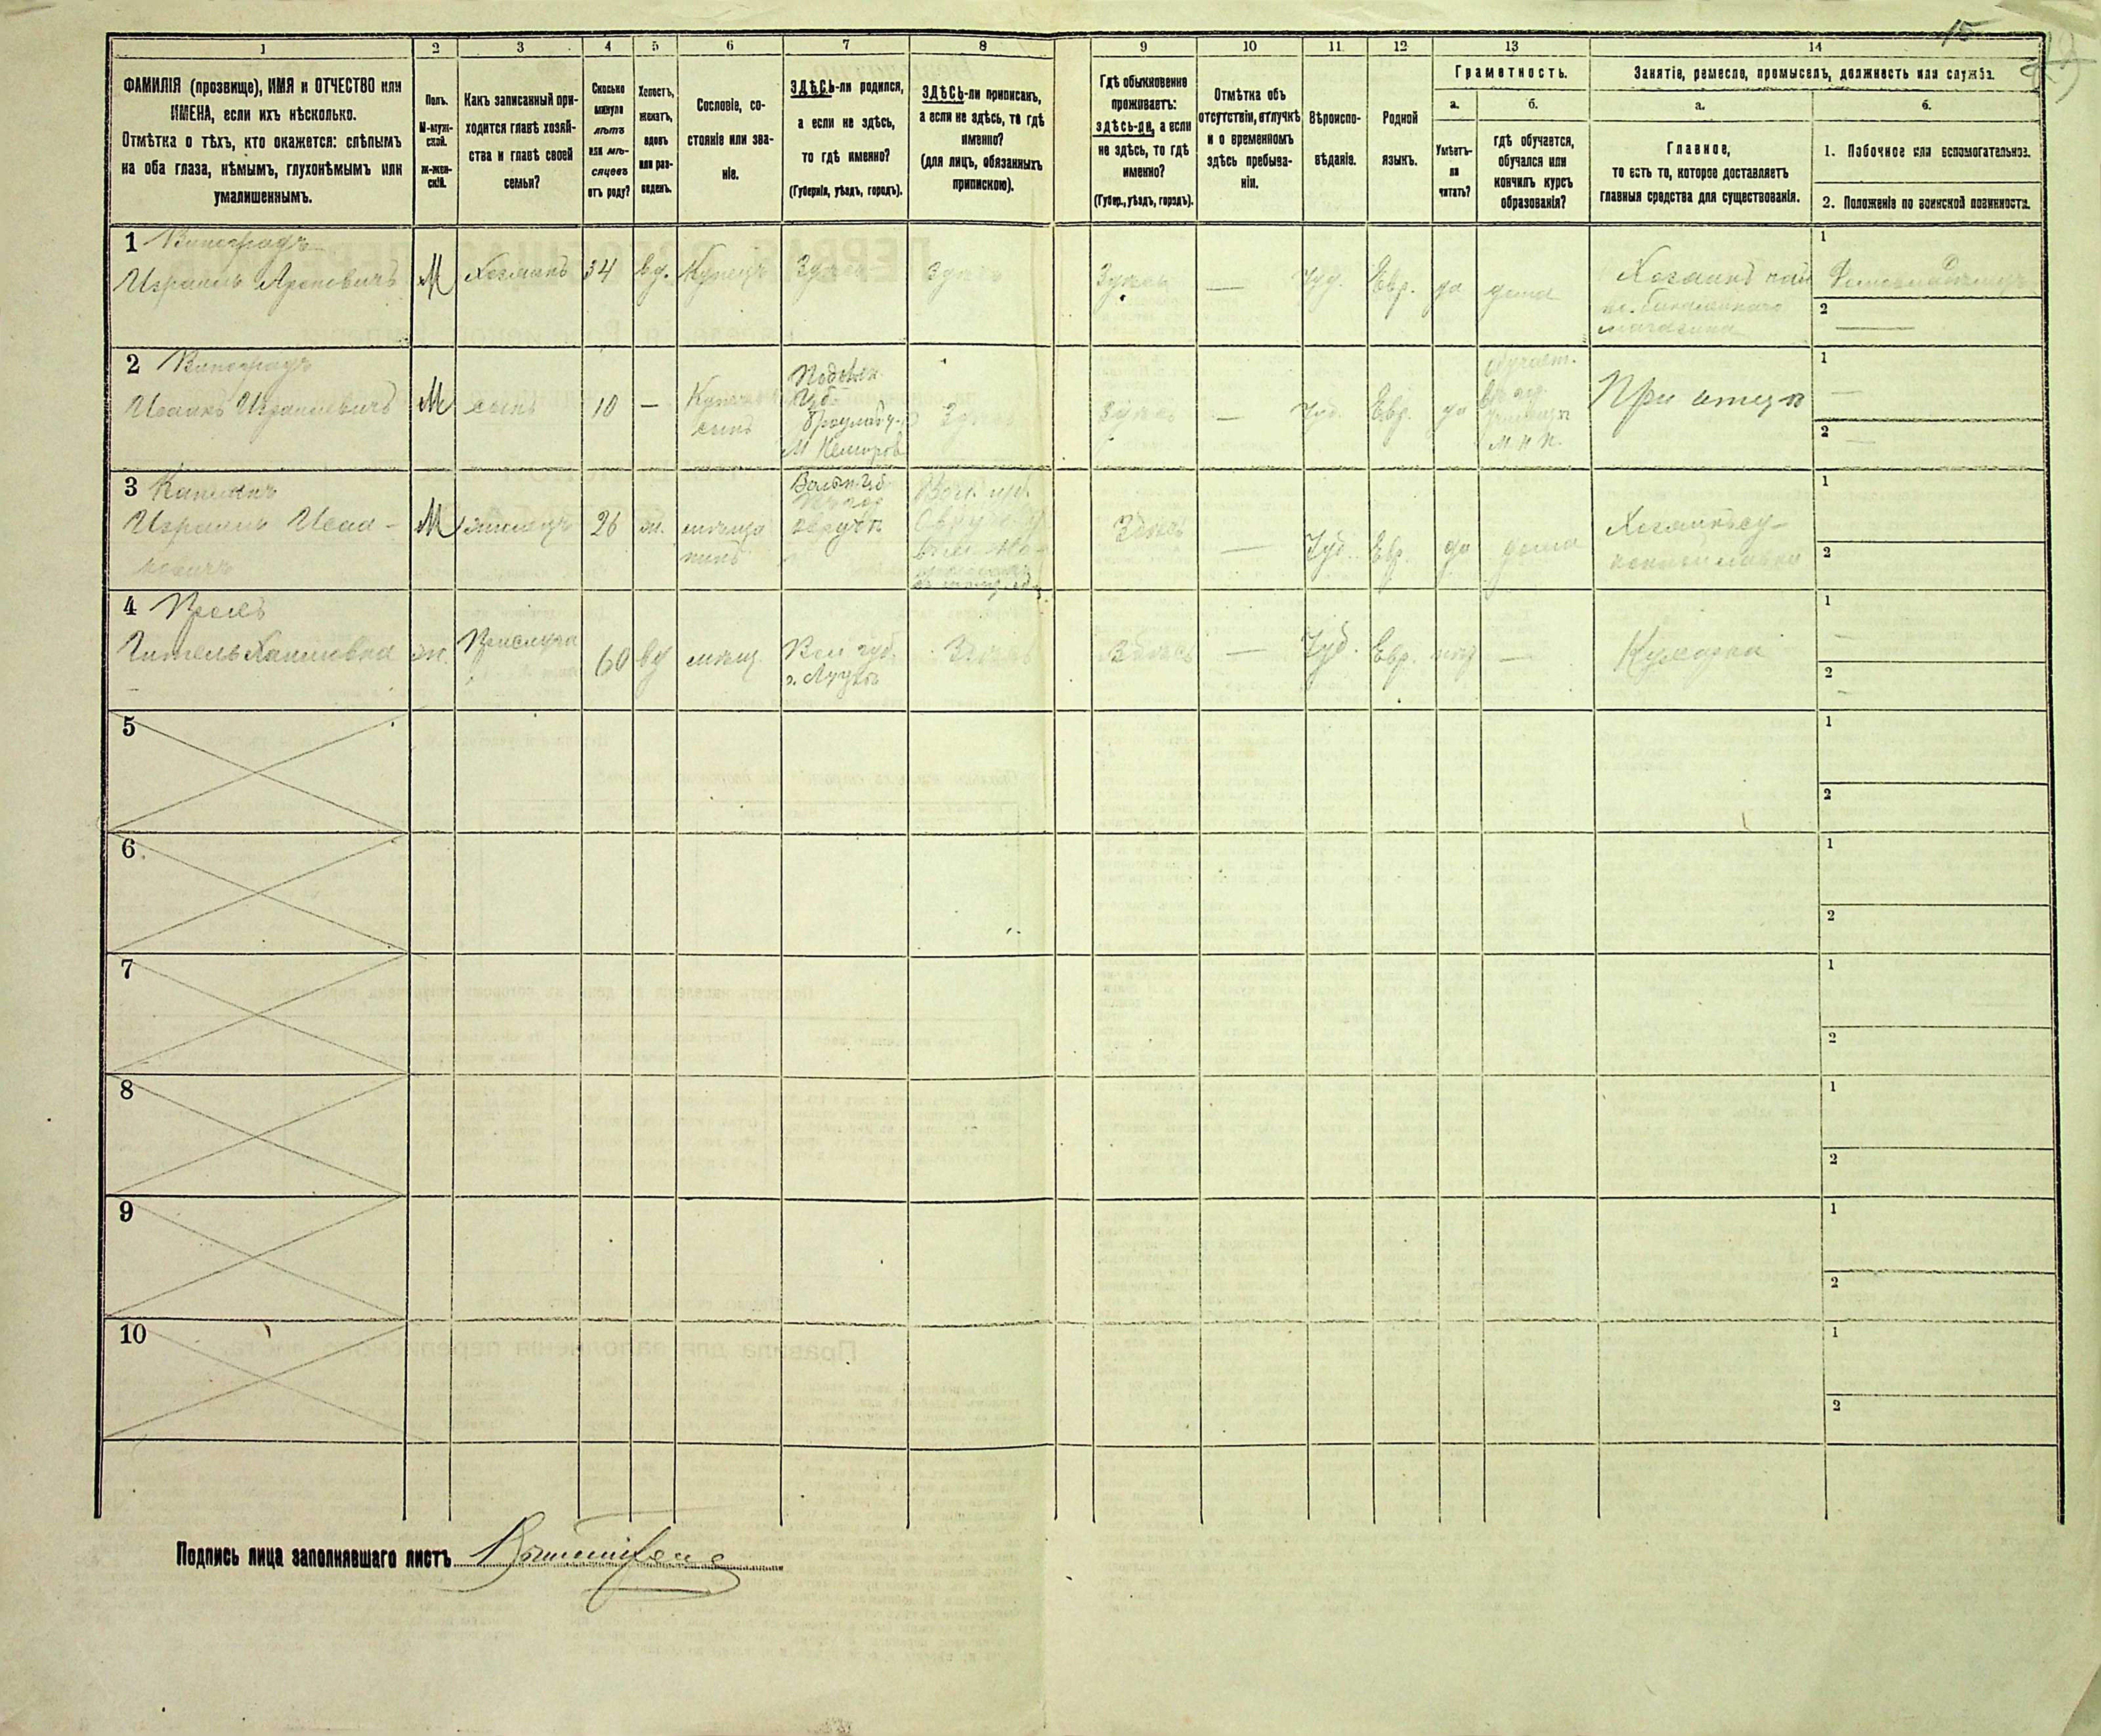 15
1
2
3
4
5
6
7
8
9
10
11
12
13
14
ФАМИЛІЯ (прозвище), ИМЯ и ОТЧЕСТВО или
ИМЕНА, если ихъ нѣсколько.
Отмѣтка о тѣхъ, кто окажется: слѣпымъ
на оба глаза, нѣмымъ, глухонѣмымъ или
умалишеннымъ.
Полъ.
М-муж-
ской.
ж-жен-
скій.
Какъ записанный при-
ходится главѣ хозяй-
ства и главѣ своей
семьи?
Сколько
минуло
лѣтъ
или мѣ-
сяцевъ
отъ роду?
Холостъ,
женатъ,
вдовъ
или раз-
веденъ.
Сословіе, со-
стояніе или зва-
ніе.
ЗДѢСЬ-ли родился,
а если не здѣсь,
то гдѣ именно?
(Губернія, уѣздъ, городъ).
ЗДѢСЬ-ли приписанъ,
а если не здѣсь, то гдѣ
именно?
(для лицъ, обязанныхъ
припискою).
Гдѣ обыкновенно
проживаетъ:
здѣсь-ли, а если
не здѣсь, то гдѣ
именно?
(Губер., уѣздъ, городъ).
Отмѣтка объ
отсутствіи, отлучкѣ
и о временномъ
здѣсь пребыва-
ніи.
Вѣроиспо-
вѣданіе.
Родной
языкъ.
Грамотность.
а.
б.
Умѣетъ-
ли
читать?
гдѣ обучается,
обучался или
кончилъ курсъ
образованія?
Занятіе, ремесло, промыселъ, должность или служба.
а.
б.
Главное,
то есть то, которое доставляетъ
главныя средства для существованія.
1. Побочное или вспомогательное.
2. Положеніе по воинской повинности.
1 Виноградъ
Израиль Ароновичъ
М
Хозяинъ
34
вд.
Купецъ
Здѣсь
Здѣсь
Здѣсь
—
Іуд.
Евр.
да
дома
Хозяинъ
магазина
1
Домовладѣлецъ
2
—
2 Виноградъ
Исаакъ Израилевичъ
М
сынъ
10
—
Купеч.
сынъ
Подольск.
Губ.
Брацлав. у.
М Немировъ
Здѣсь
Здѣсь
—
Іуд.
Евр.
да
обучает.
училищѣ
М Н П.
При отцѣ
1
—
2
—
3
Израиль Исаа-
ковичъ
М
жилецъ
26
ж.
мѣща
нинъ
Волын. Губ.
Овручъ
Вол. губ.
Здѣсь
—
Іуд.
Евр.
да
дома
Хозяинъ су-
1
2
4
Гитель Хаимовна
ж.
Прислуга
60
вд
мѣщ.
Вол губ.
г. Луцкъ
Здѣсь
Здѣсь
—
Іуд.
Евр.
нѣт
—
Кухарка
1
—
2
—
5
1
2
6
1
2
7
1
2
8
1
2
9
1
2
10
1
2
Подпись лица заполнявшаго листъ